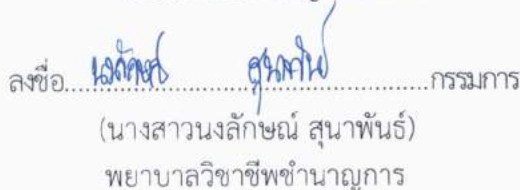 ลงชื่อ นงลักษณ์ สุนาพันธ์ กรรมการ
(นางสาวนงลักษณ์ สุนาพันธ์)
พยาบาลวิชาชีพชำนาญการ